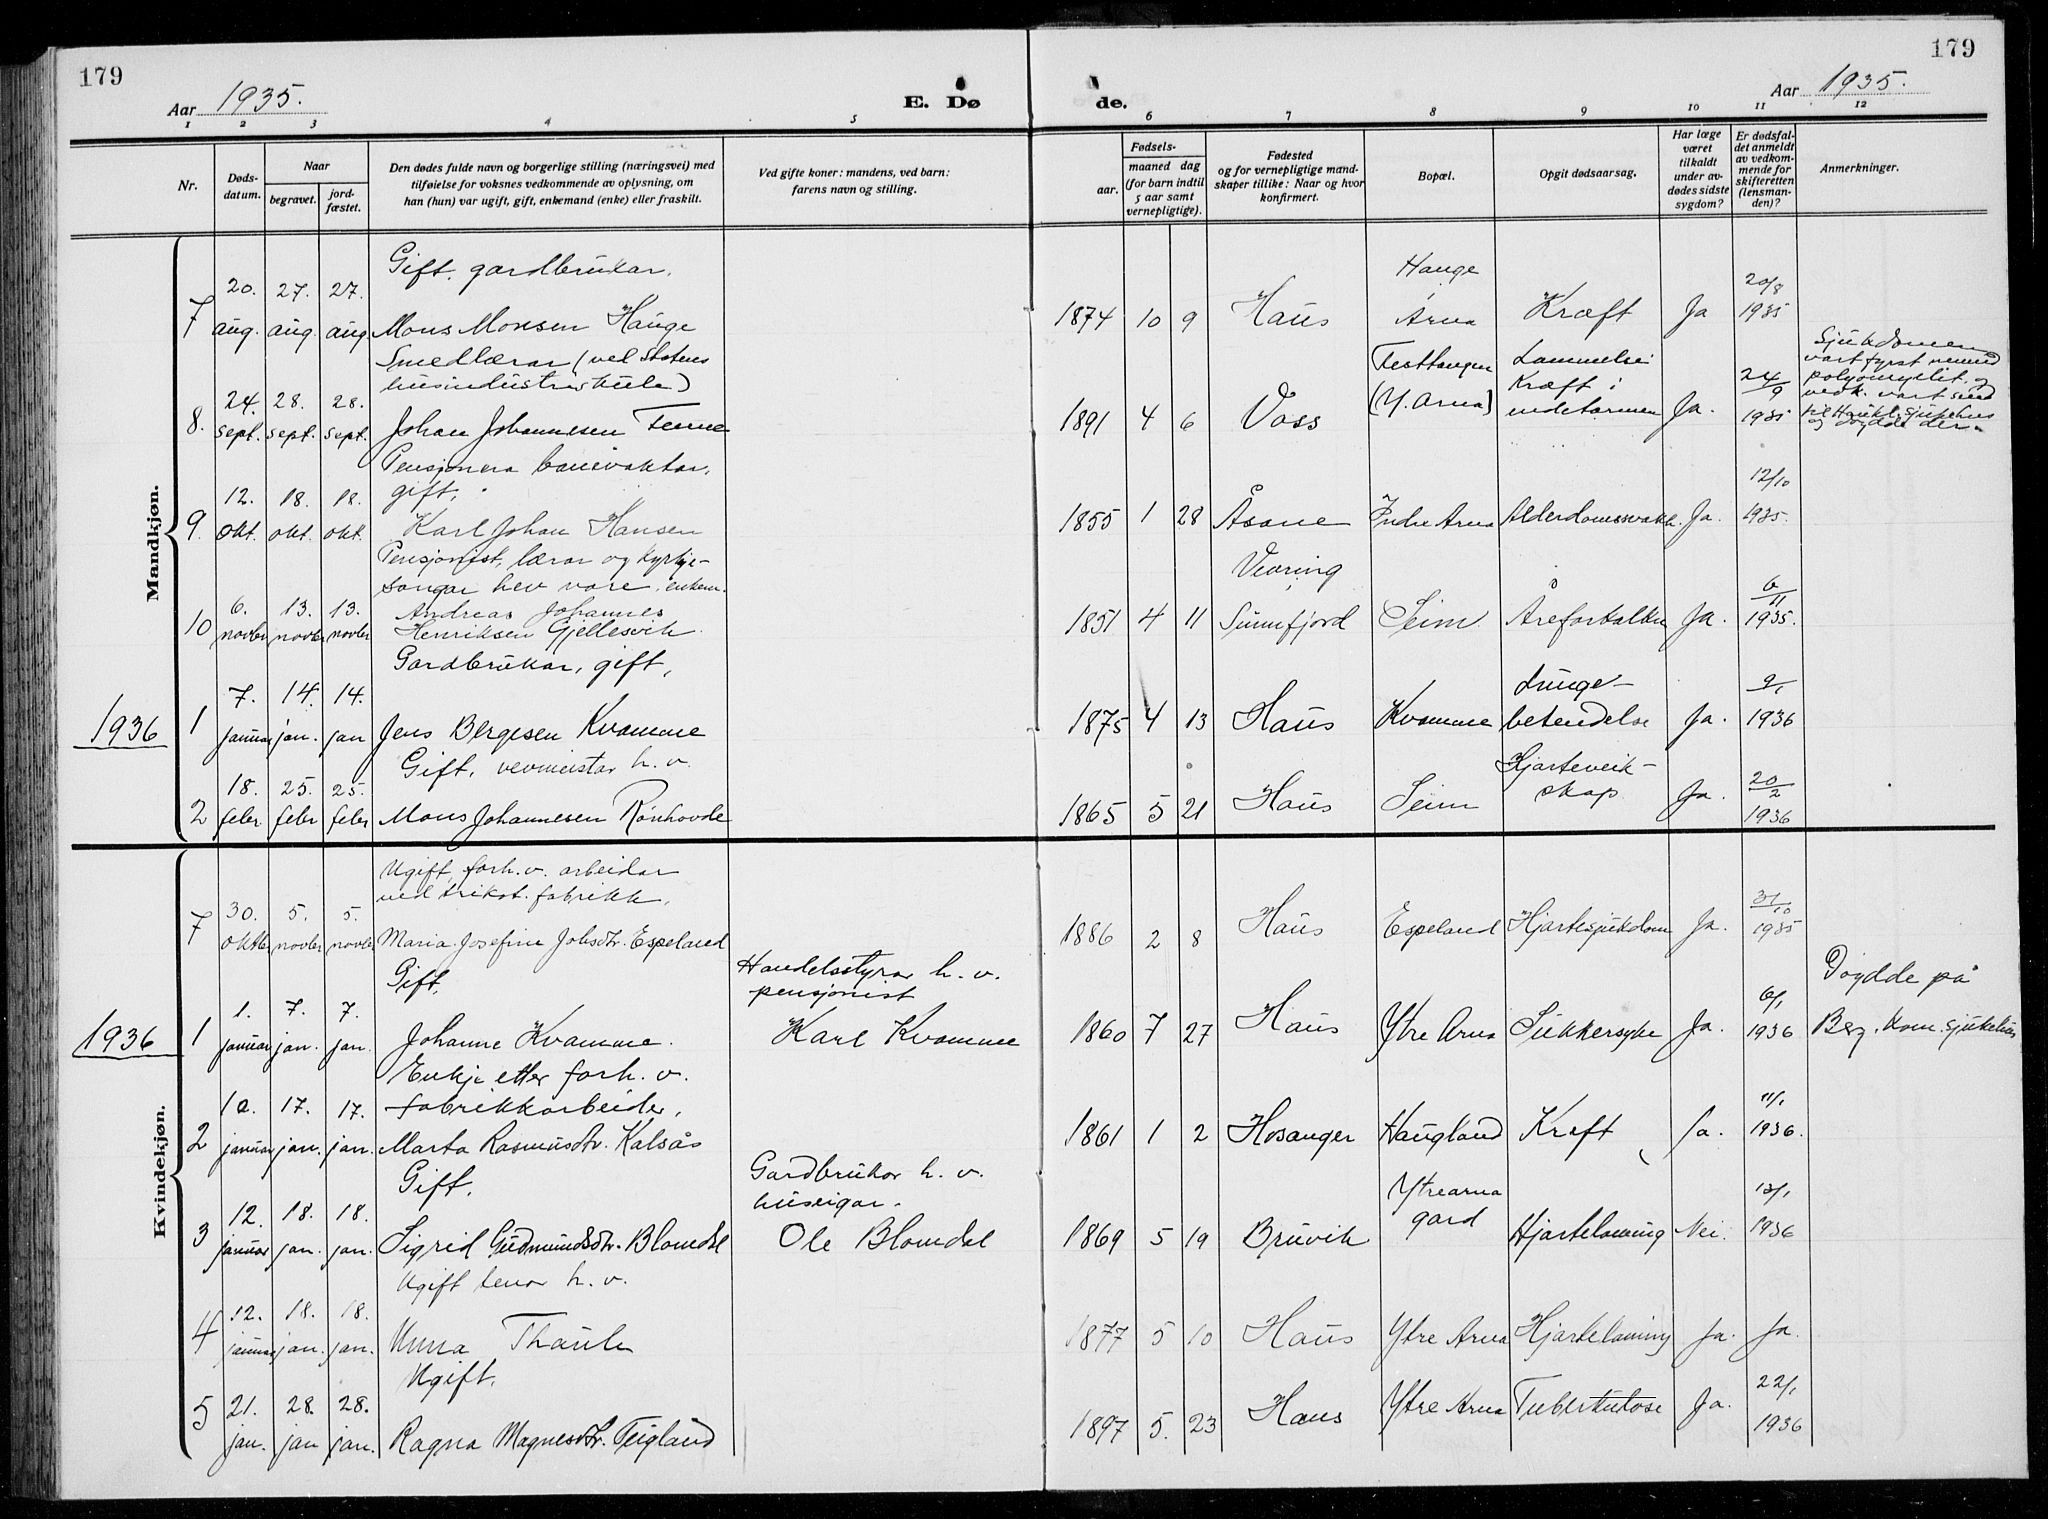 179
179
Aar 1935.
E. Dø
de.
Aar 1935.
1 2 3 4 5 6 7 8 9 10 11 12
Nr.
Døds-
datum.
Naar
begravet.
jord-
fæstet.
Den dødes fulde navn og borgerlige stilling (næringsvei) med
tilføielse for voksnes vedkommende av oplysning, om
han (hun) var ugift, gift, enkemand (enke) eller fraskilt.
Ved gifte koner: mandens, ved barn:
farens navn og stilling.
Fødsels-
aar.
maaned dag
(for barn indtil
5 aar samt
vernepligtige).
Fødested
og for vernepligtige mand-
skaper tillike: Naar og hvor
konfirmert.
Bopæl.
Opgit dødsaarsag.
Har læge
været
tilkaldt
under av-
dødes sidste
sygdom?
Er dødsfal-
det anmeldt
av vedkom-
mende for
skifteretten
(lensman-
den)?
Anmerkninger.
Mandkjøn.
Gift, gardbrukar.
7 20. aug. 27. aug. 27. aug. Mons Monsen Hauge 1874 10 9 Haus Hauge Arna Kræft Ja 20/8 1935
Smedlærar (ved Statens
husindustriskule)
8. 24. sept. 28. sept. 28. sept. Johan Johannesen Temme 1891 4 6 Voss Festtangen (Y. Arna) Lammelse: Kræft i endetarmen Ja. 24/9 1935
Sjukdomen
vart fyrst nemnd
polyomyelit. og
vedk. vart send
til Haukl. sjukehus
og døydde der.
Pensjonera banevaktar,
gift.
9. 12. okt. 18. okt. 18. okt. Karl Johan Hansen 1855 1 28 Åsane Indre Arna Alderdomssvakh. Ja. 12/10 1935.
Pensjonist, lærar og kyrkje-
songar hev vore, enkem.
10 6. novbr 13. novbr 13. novbr Andreas Johannes
Henriksen Gjellesvik 1851 4 11 Vevring Sunnfjord Seim Åreforkalkn Ja. 6/11 1935.
Gardbrukar, gift,
1936 1 7. januar 14. jan. 14. jan Jens Bergesen Kvamme 1875 4 13 Haus Kvamme Lunge-
betendelse Ja. 9/1 1936
Gift, vevmeistar h. v.
2 18. febr 25. febr 25. febr Mons Johannesen Rønhovde 1865 5 21 Haus Seim Hjarteveik-
skap Ja. 20/2 1936
Kvindekjøn.
Ugift, forh. v. arbeidar
ved trikot. fabrikk.
7 30. oktbr 5. novbr 5. novbr Maria Josefine Johsdtr. Espeland 1886 2 8 Haus Espeland Hjartesjukdom Ja. 31/10 1935
Gift.
Handelsstyrar h. v.
pensjonist
1936 1 1. januar 7. jan. 7. jan. Johanne Kvamme. Karl Kvamme 1860 7 27 Haus Ytre Arna Sukkersyke Ja. 6/1 1936 Døydde på
Berg. kom. sjukehus
Enkje etter forh. v.
fabrikkarbeider,
2 10. januar 17. jan. 17. jan. Marta Rasmusdtr. Kalsås 1861 1 2 Hosanger Haugland Kræft Ja. 11/1 1936.
Gift.
Gardbrukar h. v.
huseigar.
3 12. januar 18. jan. 18. jan. Sigrid Gudmundsdtr. Blomdal Ole Blomdal 1869 5 19 Bruvik Ytrearna
gard Hjartelamning Nei. 13/1 1936
Ugift h. v.
4 12. januar 18. jan. 18. jan. Anna Thaule 1877 5 10 Haus Ytre Arna Hjartelamning Ja. Ja.
Ugift.
5 21. jan. 28. jan 28. jan. Ragna Magnesdtr. Teigland 1897 5. 23 Haus Ytre Arna Tuberkulose Ja. 22/1 1936